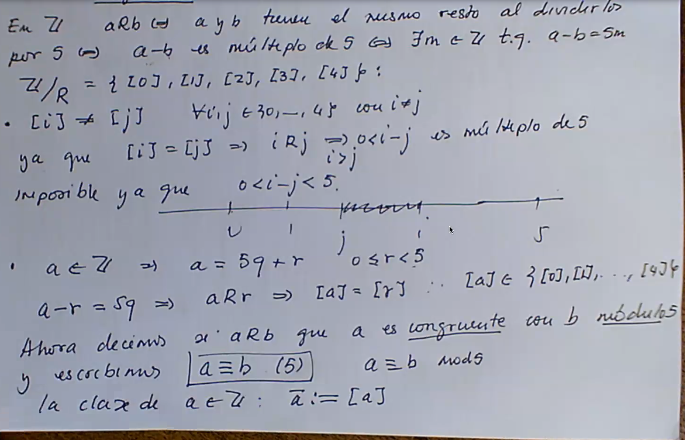 En ℤ aRb ⇔ a y b tienen el mismo resto al dividirlos
por 5 ⇔ a-b es múltiplo de 5 ⇔ ∃m ∈ ℤ t.q. a-b=5m
ℤ/R = {[0], [1], [2], [3], [4]}:
• [i] ≠ [j] ∀i,j ∈ {0,…,4} con i≠j
ya que [i]=[j] ⇒ iRj ⇒ 0<i-j es múltiplo de 5
i>j
imposible ya que 0<i-j<5.
0 1 j i 5
• a ∈ ℤ ⇒ a = 5q+r 0≤r<5
a-r=5q ⇒ aRr ⇒ [a]=[r] ∴ [a] ∈ {[0],[1],…,[4]}
Ahora decimos si aRb que a es congruente con b módulo 5
y escribimos a≡b (5) a≡b mod 5
la clase de a ∈ ℤ: a̅ := [a]